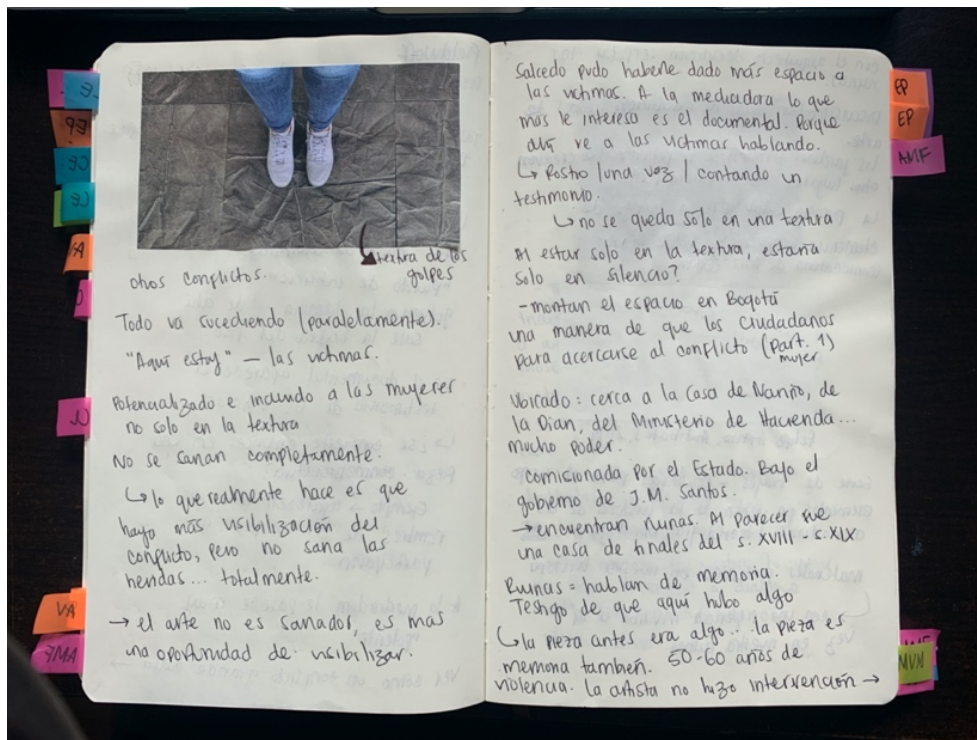 textura de los
golpes
otros conflictos.
Todo va sucediendo (paralelamente).
"Aquí estoy" — las victimas.
Potencializado e incluido a las mujeres
no solo en la textura
No se sanan completamente.
↳ lo que realmente hace es que
haya más visibilización del
conflicto, pero no sana las
heridas... totalmente.
→ el arte no es sanador, es más
una oportunidad de visibilizar.
Salcedo pudo haberle dado más espacio a
las victimas. A la mediadora lo que
mas le interesa es el documental. Porque
allí ve a las victimas hablando.
↳ Rostro / una voz / contando un
testimonio.
↳ no se queda solo en una textura
Al estar solo en la textura, estaría
solo en silencio?
- montan el espacio en Bogotá
una manera de que los ciudadanos
para acercarse al conflicto (Part. 1)
mujer
Ubicado: cerca a la casa de Nariño, de
la Dian, del Ministerio de Hacienda...
mucho poder.
Comisionada por el Estado. Bajo el
gobierno de J.M. Santos.
→ encuentran ruinas. Al parecer fue
una casa de finales del s. XVIII - s. XIX
Ruinas = hablan de memoria.
Testigo de que aquí hubo algo
↳ la pieza antes era algo... la pieza es
memoria también. 50-60 años de
violencia. La artista no hizo intervención →
EP
EP
AMF
VA
MVM